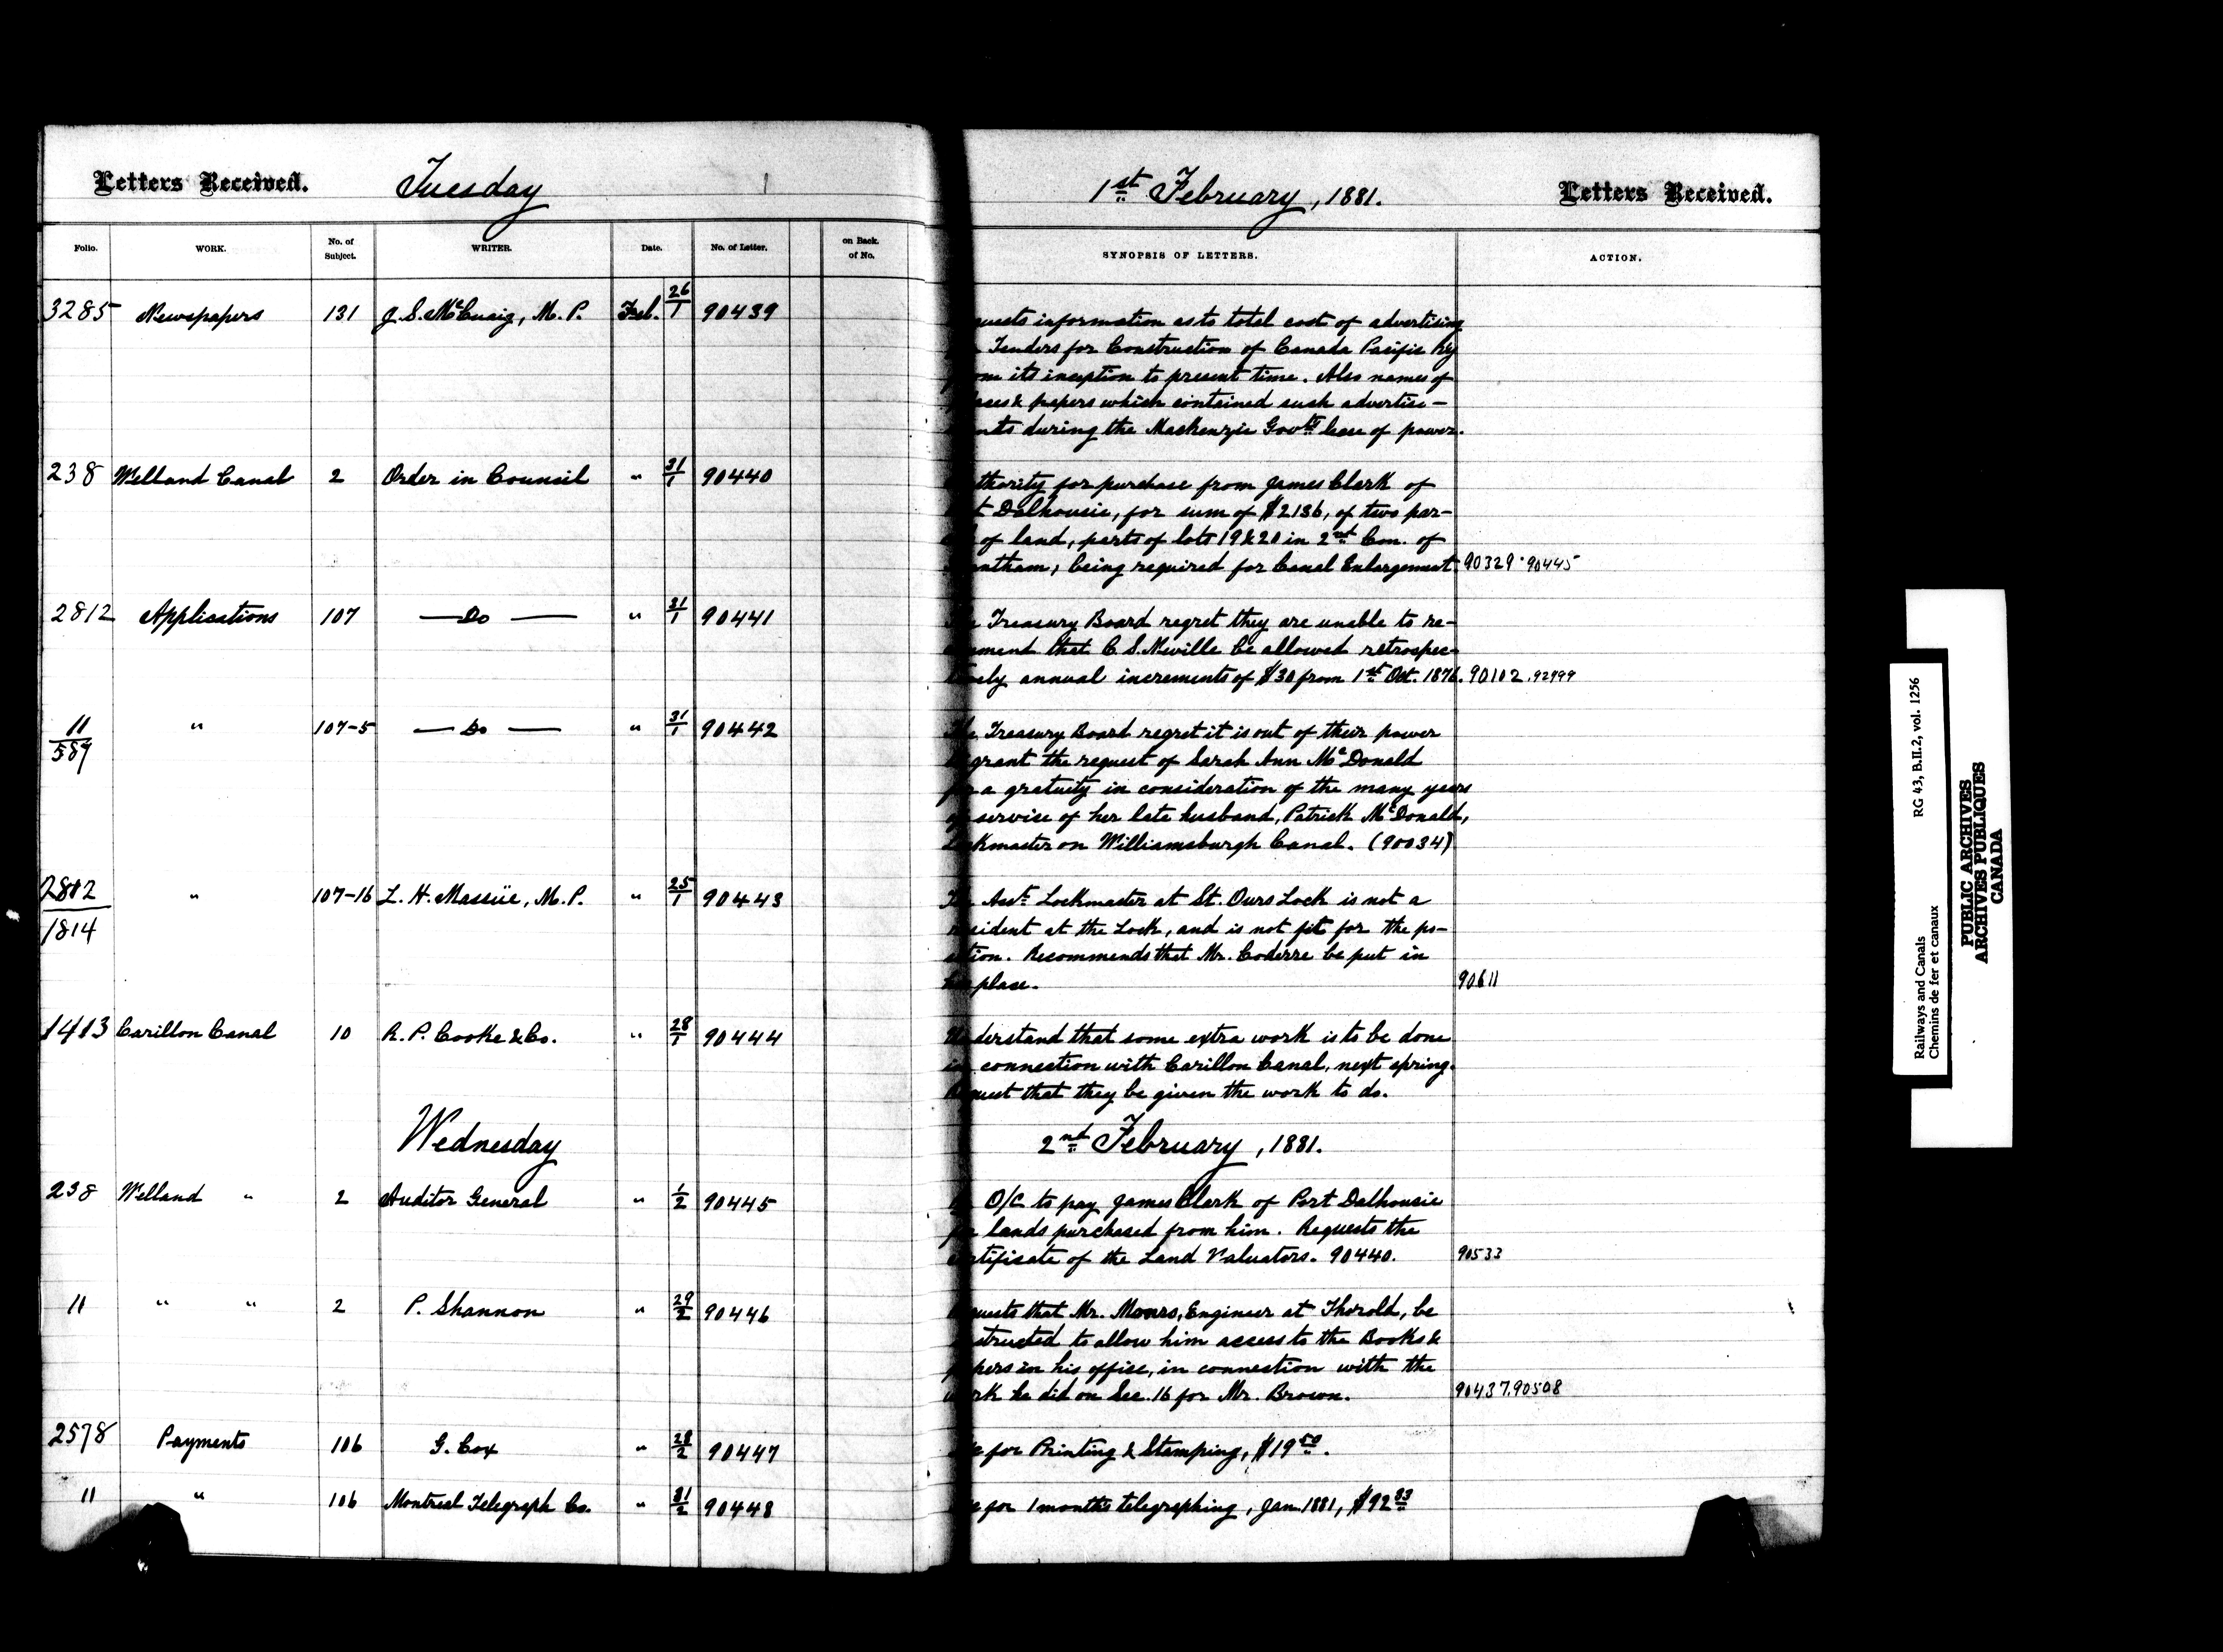 Letters Received. Tuesday 1st February, 1881. Letters Received.
Folio. WORK. No. of Subject. WRITER. Date. No. of Letter. on Back. of No. SYNOPSIS OF LETTERS. ACTION.
3285 Newspapers 131 J. S. McCuaig, M. P. Feb. 26/1 90439
quests information as to total cost of advertising
Tenders for Construction of Canada Pacific Ry
om its inception to present time. Also names of
aces & papers which contained such advertise-
nts during the Mackenzie Govt's lease of power.
238 Welland Canal 2 Order in Council " 31/1 90440
thority for purchase from James Clark of
t Dalhousie, for sum of $2136, of two par-
of land, parts of lots 19 & 20 in 2nd Con. of
antham, being required for Canal Enlargement. 90329 · 90445
2812 Applications 107 — Do — " 31/1 90441
Treasury Board regret they are unable to re-
mend that C. S. Neville be allowed retrospec-
ively annual increments of $30 from 1st Oct. 1876. 90102 . 92999
11/589 " 107-5 — Do — " 31/1 90442
The Treasury Board regret it is out of their power
grant the request of Sarah Ann McDonald
for a gratuity in consideration of the many years
of service of her late husband, Patrick McDonald,
Lockmaster on Williamsburgh Canal. (90034)
2812/1814 " 107-16 L. H. Massüe, M. P. " 25/1 90443
The Asst Lockmaster at St. Ours Lock is not a
resident at the Lock, and is not fit for the po-
sition. Recommends that Mr. Coderre be put in
his place. 90611
1413 Carillon Canal 10 R. P. Cooke & Co. " 28/1 90444
Understand that some extra work is to be done
in connection with Carillon Canal, next spring.
Request that they be given the work to do.
Wednesday 2nd February, 1881.
238 Welland " 2 Auditor General " 1/2 90445
O/C to pay James Clark of Port Dalhousie
for lands purchased from him. Requests the
certificate of the Land Valuators. 90440. 90533
11 " " 2 P. Shannon " 29/2 90446
quests that Mr. Monro, Engineer at Thorold, be
structed to allow him access to the Books &
papers in his office, in connection with the
work he did on Sec. 16 for Mr. Brown. 90437.90508
2578 Payments 106 G. Cox " 28/2 90447
for Printing & Stamping, $19 50.
11 " 106 Montreal Telegraph Co. " 31/2 90448
for 1 month's telegraphing, Jan. 1881, $92 33
Railways and Canals RG 43, B.II.2, vol. 1256
Chemins de fer et canaux
PUBLIC ARCHIVES
ARCHIVES PUBLIQUES
CANADA